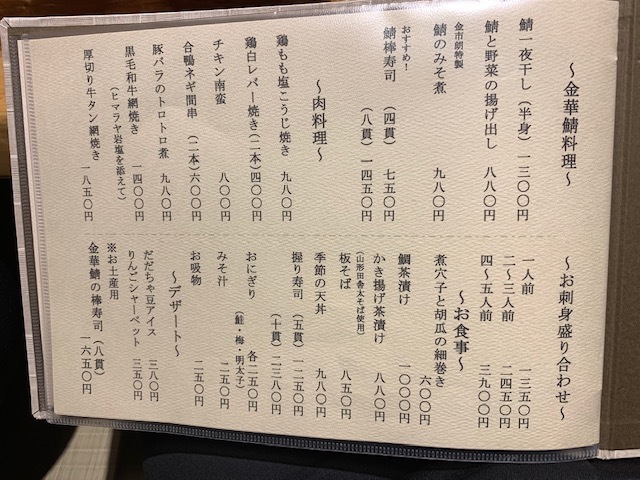 ～金華鯖料理～
鯖一夜干し（半身）一三〇〇円
鯖と野菜の揚げ出し 八八〇円
金市朗特製
鯖のみそ煮 九八〇円
おすすめ！
鯖棒寿司 （四貫） 七五〇円
（八貫） 一四五〇円
～肉料理～
鶏もも塩こうじ焼き 九八〇円
鶏白レバー焼き（二本）四〇〇円
チキン南蛮 八〇〇円
合鴨ネギ間串 （二本）六〇〇円
豚バラのトロトロ煮 九八〇円
黒毛和牛網焼き 一四〇〇円
（ヒマラヤ岩塩を添えて）
厚切り牛タン網焼き 一八五〇円
～お刺身盛り合わせ～
一人前 一三五〇円
二～三人前 二四五〇円
四～五人前 三九〇〇円
～お食事～
煮穴子と胡瓜の細巻き
六〇〇円
鯛茶漬け 一〇〇〇円
かき揚げ茶漬け 八八〇円
（山形田舎太そば使用）
板そば 八五〇円
季節の天丼 九八〇円
握り寿司 （五貫） 一二五〇円
（十貫） 二三八〇円
おにぎり 各二五〇円
（鮭・梅・明太子）
みそ汁 二五〇円
お吸物 二五〇円
～デザート～
だだちゃ豆アイス 三八〇円
りんごシャーベット 三五〇円
※お土産用
金華鯖の棒寿司（八貫）
一六五〇円